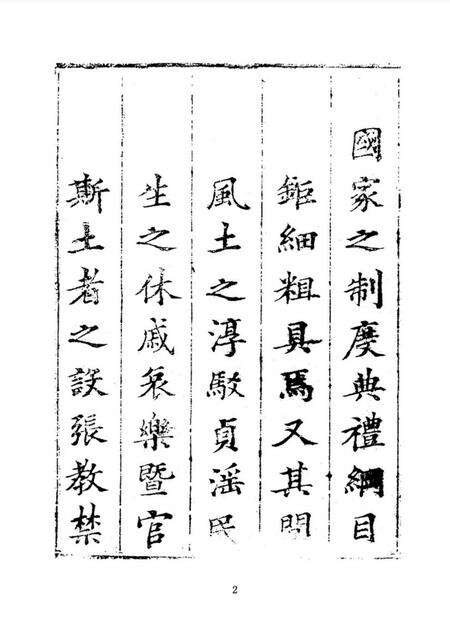 國家之制度典禮綱目
鉅細粗具焉又其間
風土之淳駁貞滛民
生之休戚哀樂暨官
斯土者之設張教禁
2